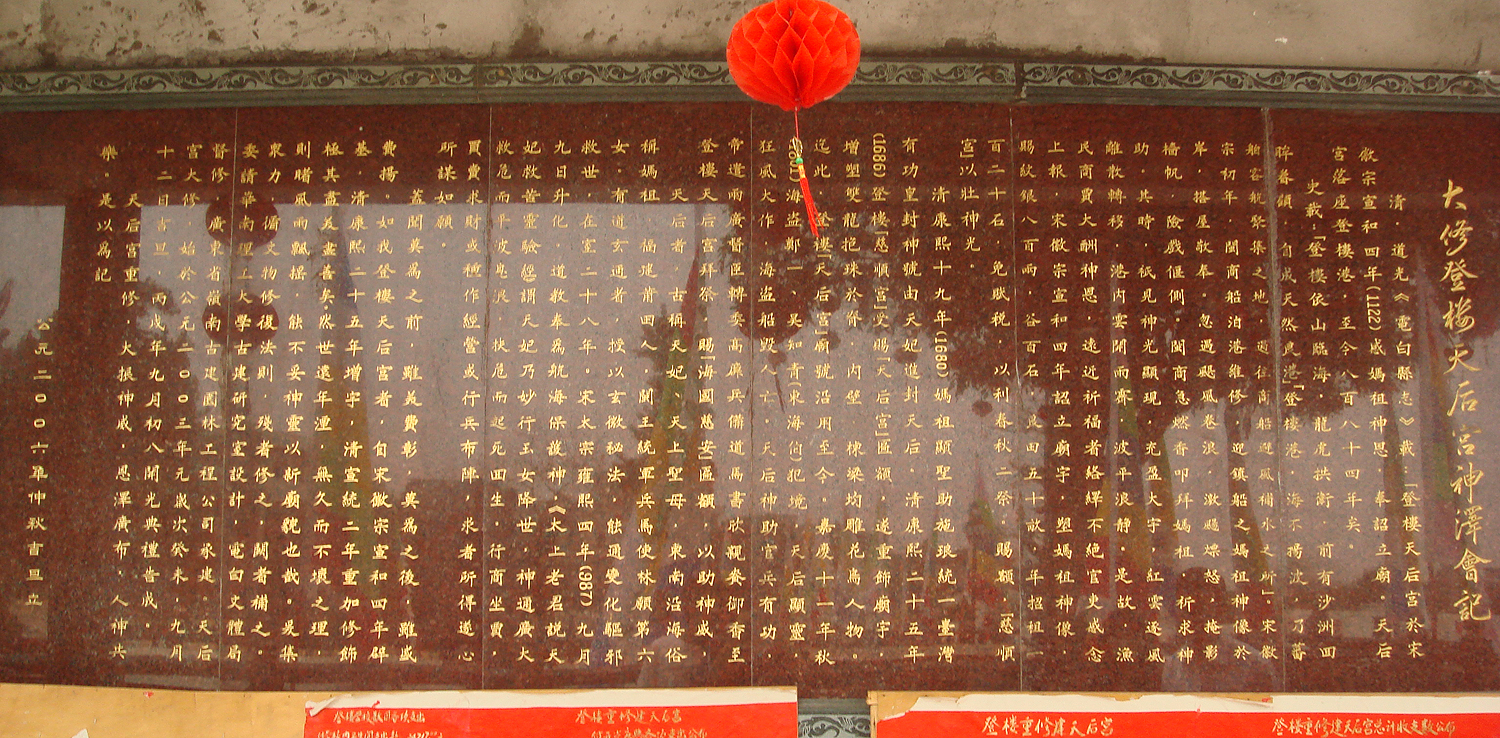 大修登楼天后宮神澤會記
清．道光《電白縣志》載：「登樓天后宮於宋
徽宗宣和四年(1122)感媽祖神恩．奉詔立廟。天后
宮落座登樓港，至今八百八十四年矣。
史載：「登樓依山臨海，龍虎拱衛．前有沙洲四
眸眷顧．自成天然良港「登樓港．海不揚波，乃蕃
舶客舰聚集之地．過往商船避风補水之所」．宋徽
宗初年，閩商船泊港維修．迎鎮船之媽祖神像於
岸，搭屋敬奉．忽遇颶風卷浪．激飓爆怒，掩影
檣帆，險戲偃側，閩商急燃香叩拜媽祖．祈求神
助．其時，祇見神光顯現，充盈大宇，紅雲逐風
離散轉移．港內雲開而霽．波平浪靜。是故．漁
民商賈大酬神恩，遠近祈福者絡繹不絕官吏感念
上報．宋徽宗宣和四年詔立廟宇，塑媽祖神像一
賜紋銀八百兩，谷百石，良田五十畝．年招租一
百二十石．免賦税，以利春秋二祭。賜額．「慈順
宮」以壯神光．
清康熙十九年(1680)媽祖顯聖助施琅統一臺灣
有功皇封神號由天妃進封天后。清康熙二十五年
(1686)登樓「慈順宮」受賜「天后宮」匾額，遂重飾廟宇．
增塑雙龍抱珠於脊．內壁．棟梁均雕花鳥人物。
迄此．登樓「天后宮」廟號沿用至今。嘉慶十一年秋
海盜鄭一、吴知青(東海伯)犯境．天后顯靈，
狂風大作，海盜船毀人亡．天后神助官兵有功，
帝遣兩廣督臣轉委高廉兵備道馬書欣親赍御香至
登樓天后宮拜祭．賜「海國慈安」匾額．以助神威．
天后者，古稱天妃、天上聖母．東南沿海俗
稱媽祖．福建莆田人．閩王統軍兵馬使林願第六
女．有道玄通者．授以玄微秘法．能通變化驅邪
救世．在室二十八年。宋太宗雍熙四年(987)九月
九日升化．道教奉爲航海保護神．《太上老君說天
妃救苦靈驗經》謂天妃乃妙行玉女降世，神通廣大
救危而平波息浪．扶危而起死回生．行商坐賈，
買賣求財或種作經營或行兵布陣，求者所得遂心
所謀如願。
蓋聞莫爲之前，雖美費彰，莫爲之後，雖盛
費揚。如我登樓天后宮者，自宋徽宗宣和四年肆
基．清康熙二十五年增宇，清宣統二年重加修飾
極其盡美盡善矣然世遠年湮．無久而不壞之理．
則睹風雨飄揺．能不妥神靈以新廟貌也哉。爰集
衆力．循文物修復法則．殘者修之，闕者補之。
委請華南理工大學古建研究室設計，電白文體局
督修．廣東省嶺南古建園林工程公司承建。天后
宮大修．始於公元二〇〇三年元歲次癸未，九月
十二日吉旦．丙戌年九月初八開光典禮告成。
天后宮重修，大振神威，恩澤廣布，人神共
樂。是以爲記
公元二〇〇六年仲秋吉旦立
登樓重修建天后宮
登樓重修建天后宮
登樓重修建天后宮总计收支數公布